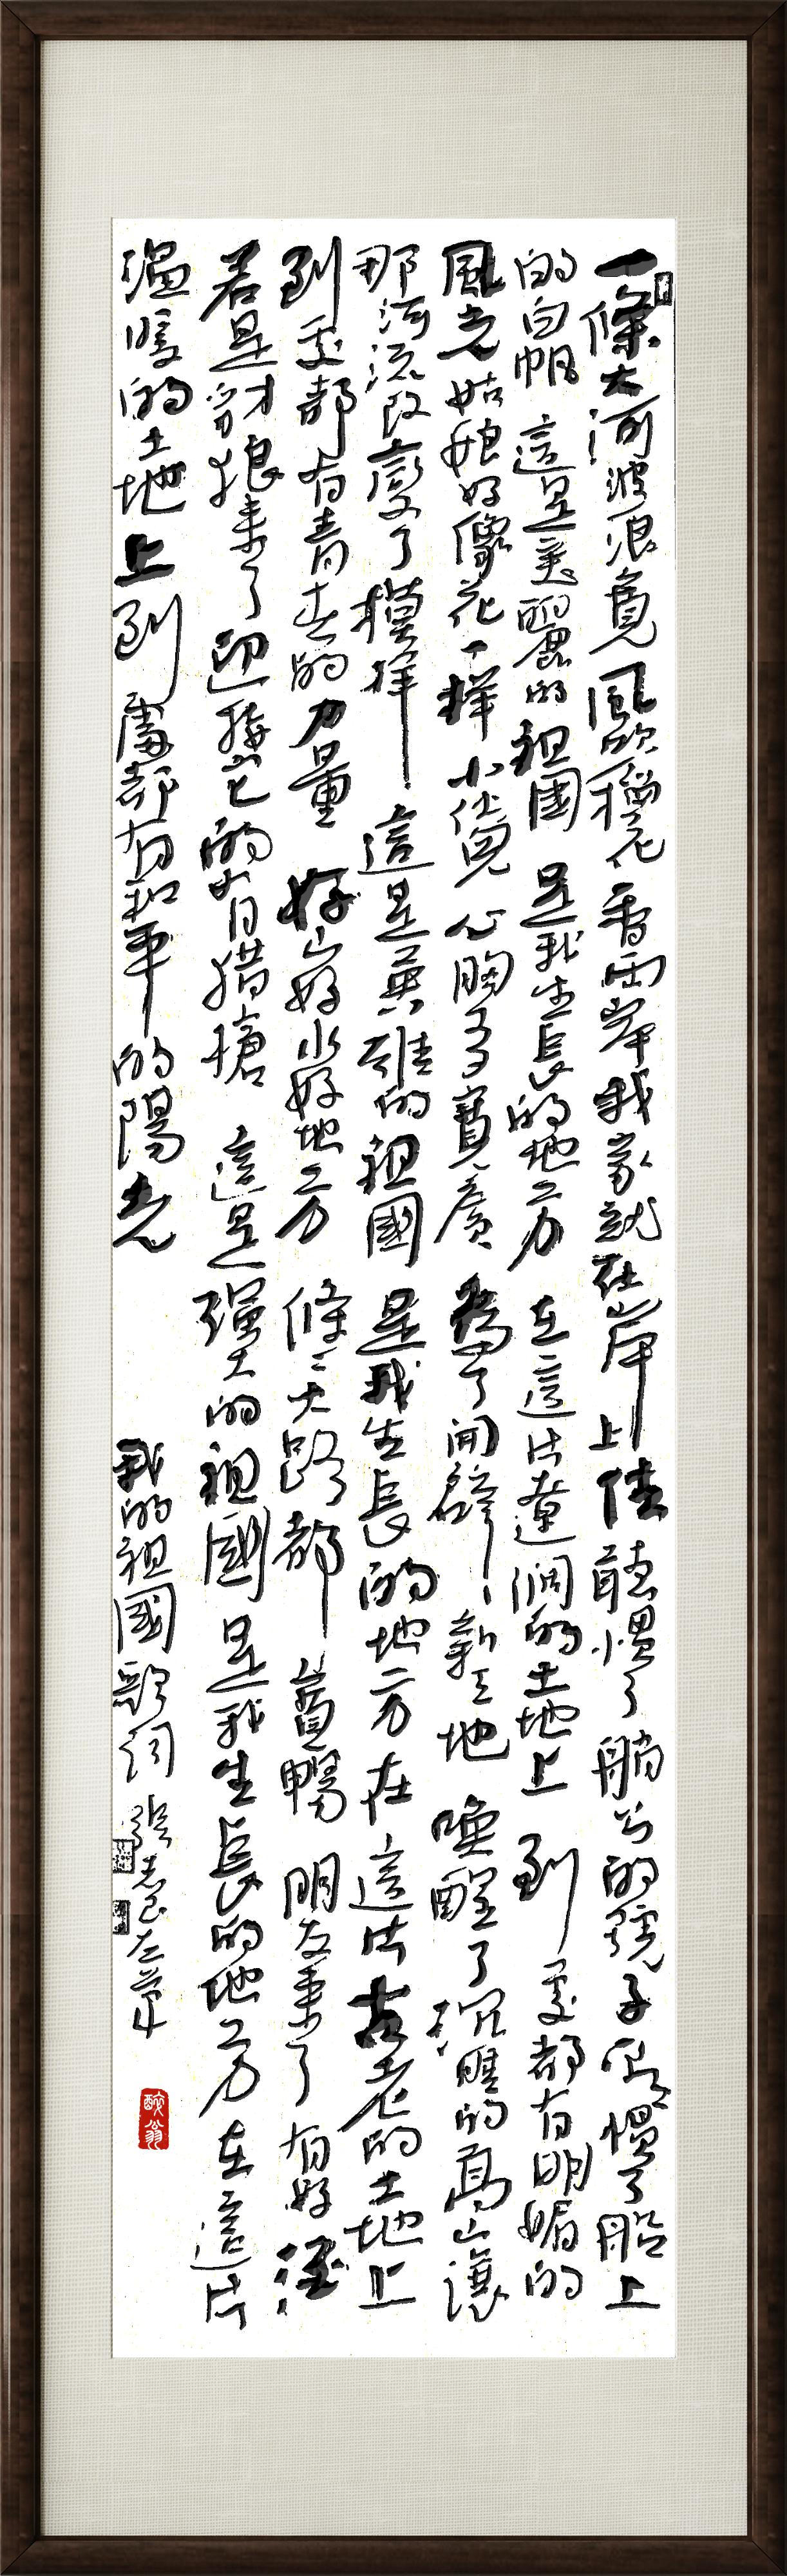 一條大河波浪寬風吹稻花香兩岸我家就在岸上住聽慣了艄公的號子看慣了船上
的白帆 這是美麗的祖國 是我生長的地方 在這片遼闊的土地上 到處都有明媚的
風光姑娘好像花一樣小伙兒心胸多寬廣 為了開辟新天地 喚醒了沉睡的高山讓
那河流改變了模樣 這是英雄的祖國 是我生長的地方在這片古老的土地上
到處都有青春的力量 好山好水好地方 條條大路都寬暢 朋友來了有好酒
若是豺狼來了迎接它的有獵槍 這是強大的祖國是我生長的地方在這片
溫暖的土地上到處都有和平的陽光
我的祖國歌詞 張志良左筆
醉翁